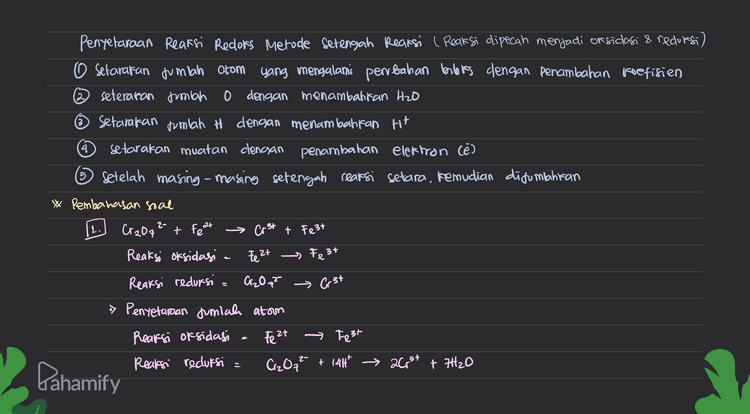 Penyetaraan Reaksi Redoks Metode Setengah Reaksi ( Reaksi dipecah menjadi oksidasi & reduksi )
① Setarakan jumlah atom yang mengalami perubahan biloks dengan Penambahan koefisien
② setarakan jumlah O dengan menambahkan H₂O
③ Setarakan jumlah H dengan menambahkan H⁺
④ setarakan muatan dengan penambahan elektron (e)
⑤ Setelah masing - masing setengah reaksi setara, kemudian dijumlahkan
※ Pembahasan soal
1. Cr₂O₇²⁻ + Fe²⁺ → Cr³⁺ + Fe³⁺
Reaksi oksidasi = Fe²⁺ → Fe³⁺
Reaksi reduksi = Cr₂O₇²⁻ → Cr³⁺
> Penyetaraan jumlah atom
Reaksi oksidasi = Fe²⁺ → Fe³⁺
Reaksi reduksi = Cr₂O₇²⁻ + 14H⁺ → 2Cr³⁺ + 7H₂O
Pahamify